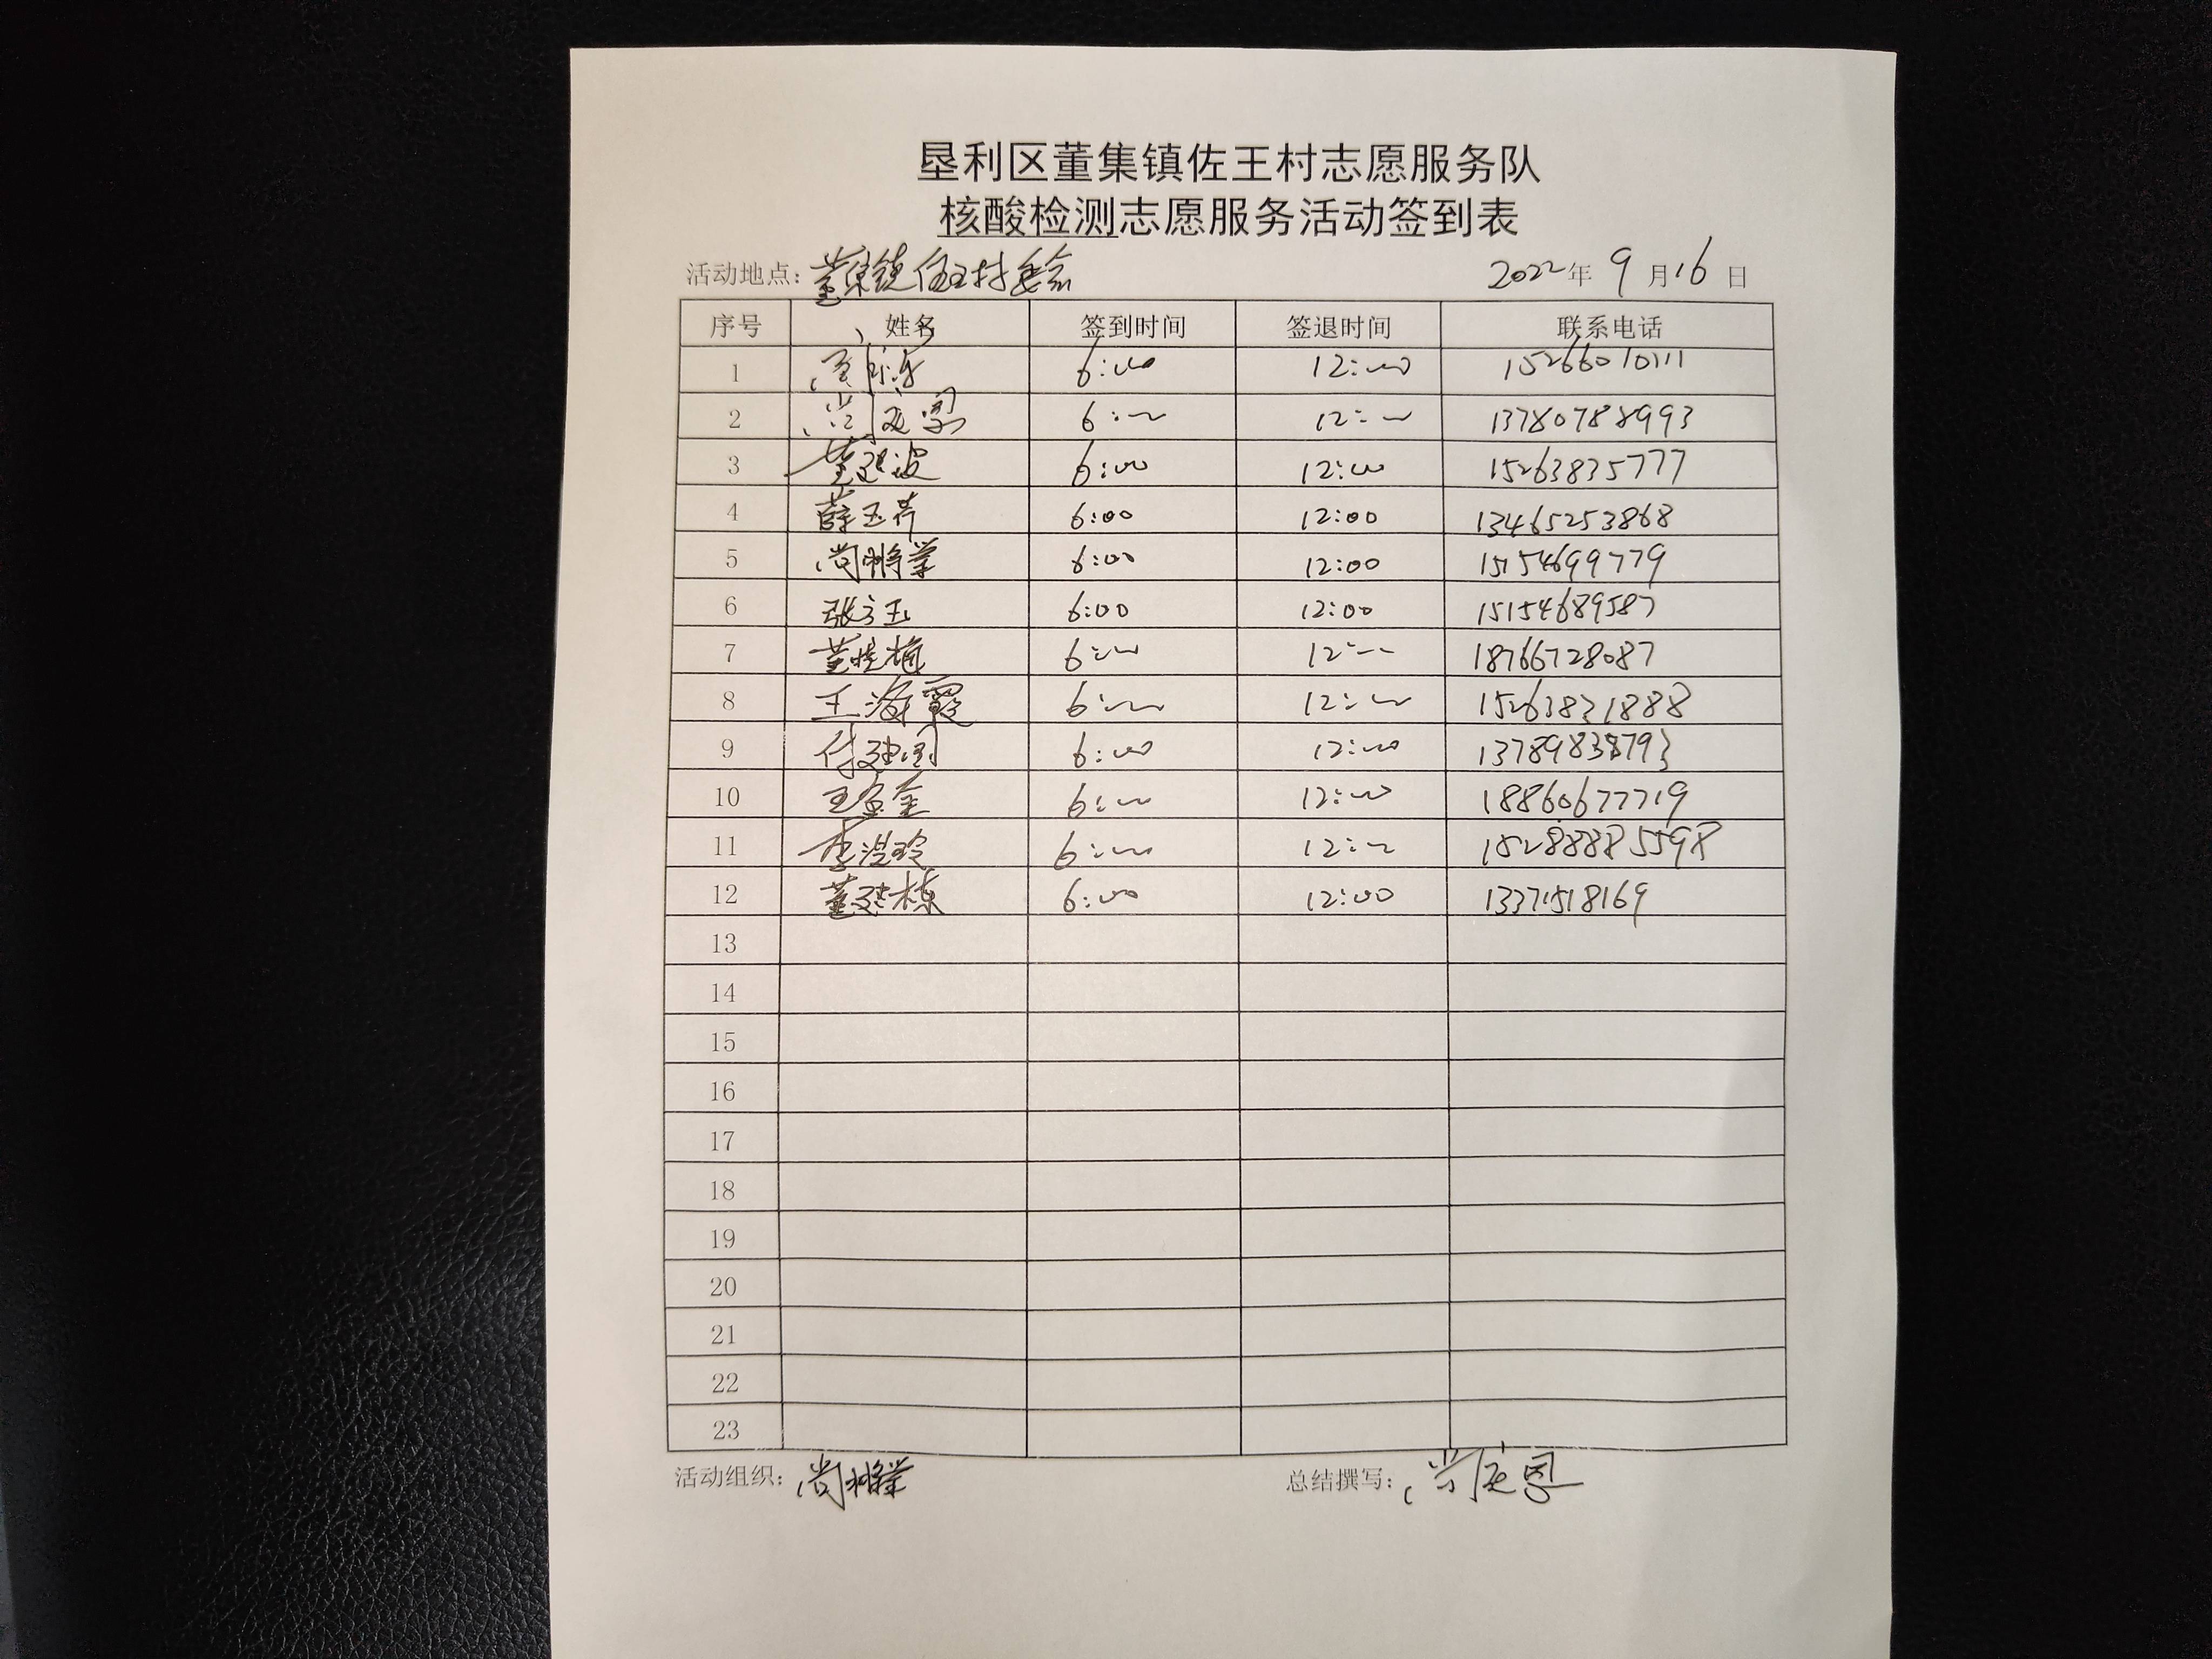 垦利区董集镇佐王村志愿服务队
核酸检测志愿服务活动签到表
活动地点：董集镇佐王村委会 2022年9月16日
序号 姓名 签到时间 签退时间 联系电话
1 6:00 12:00 15266010111
2 尚庆恩 6:00 12:00 13780788993
3 6:00 12:00 15263835777
4 薛玉芹 6:00 12:00 13465253868
5 6:00 12:00 15154699779
6 张方玉 6:00 12:00 15154689587
7 董桂梅 6:00 12:00 18766728087
8 王海霞 6:00 12:00 15263831888
9 付建国 6:00 12:00 13789838793
10 6:00 12:00 18860677719
11 6:00 12:00
12 董建栋 6:00 12:00 13371518169
13
14
15
16
17
18
19
20
21
22
23
活动组织： 总结撰写：尚庆恩